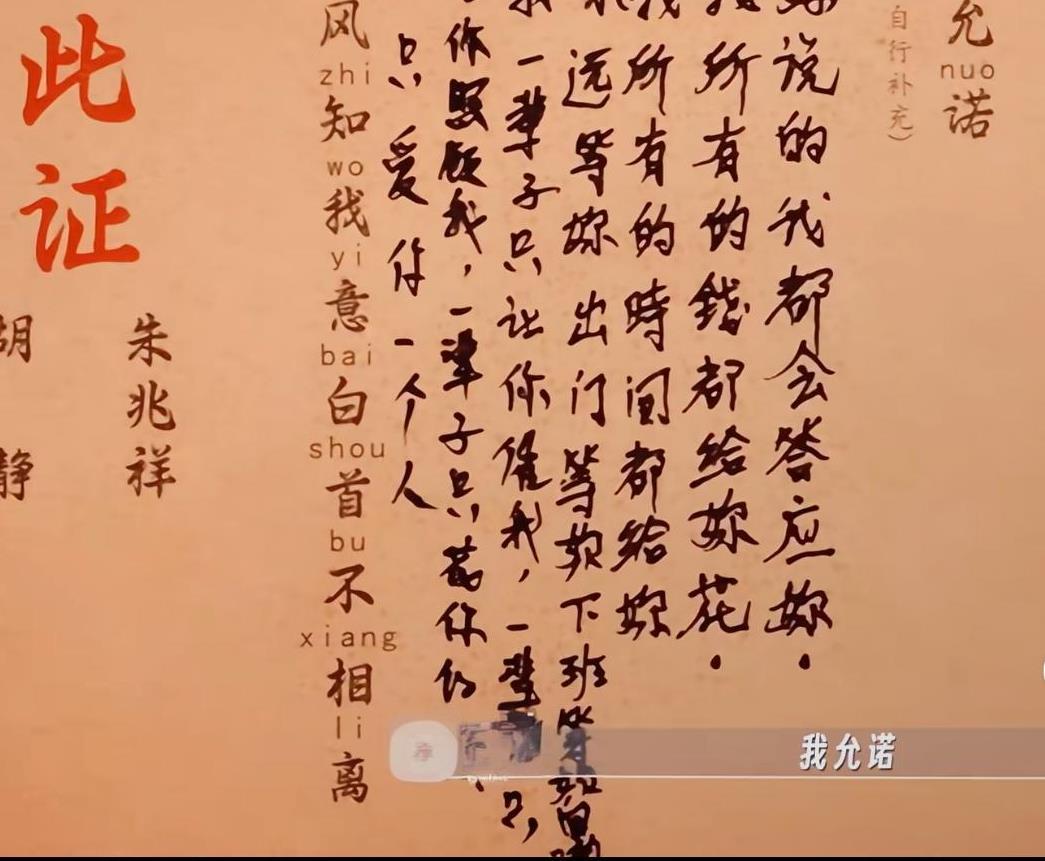 允诺
nuo
自行补充）
妳说的我都会答应妳.
所有的錢都给妳花.
所有的時间都给妳
远等妳出门等妳下班等
一辈子只让你催我，一辈
你照顾我，一辈子只花你的
只爱你一个人
风知我意白首不相离
zhi wo yi bai shou bu xiang li
朱兆祥
胡静
此证
我允诺